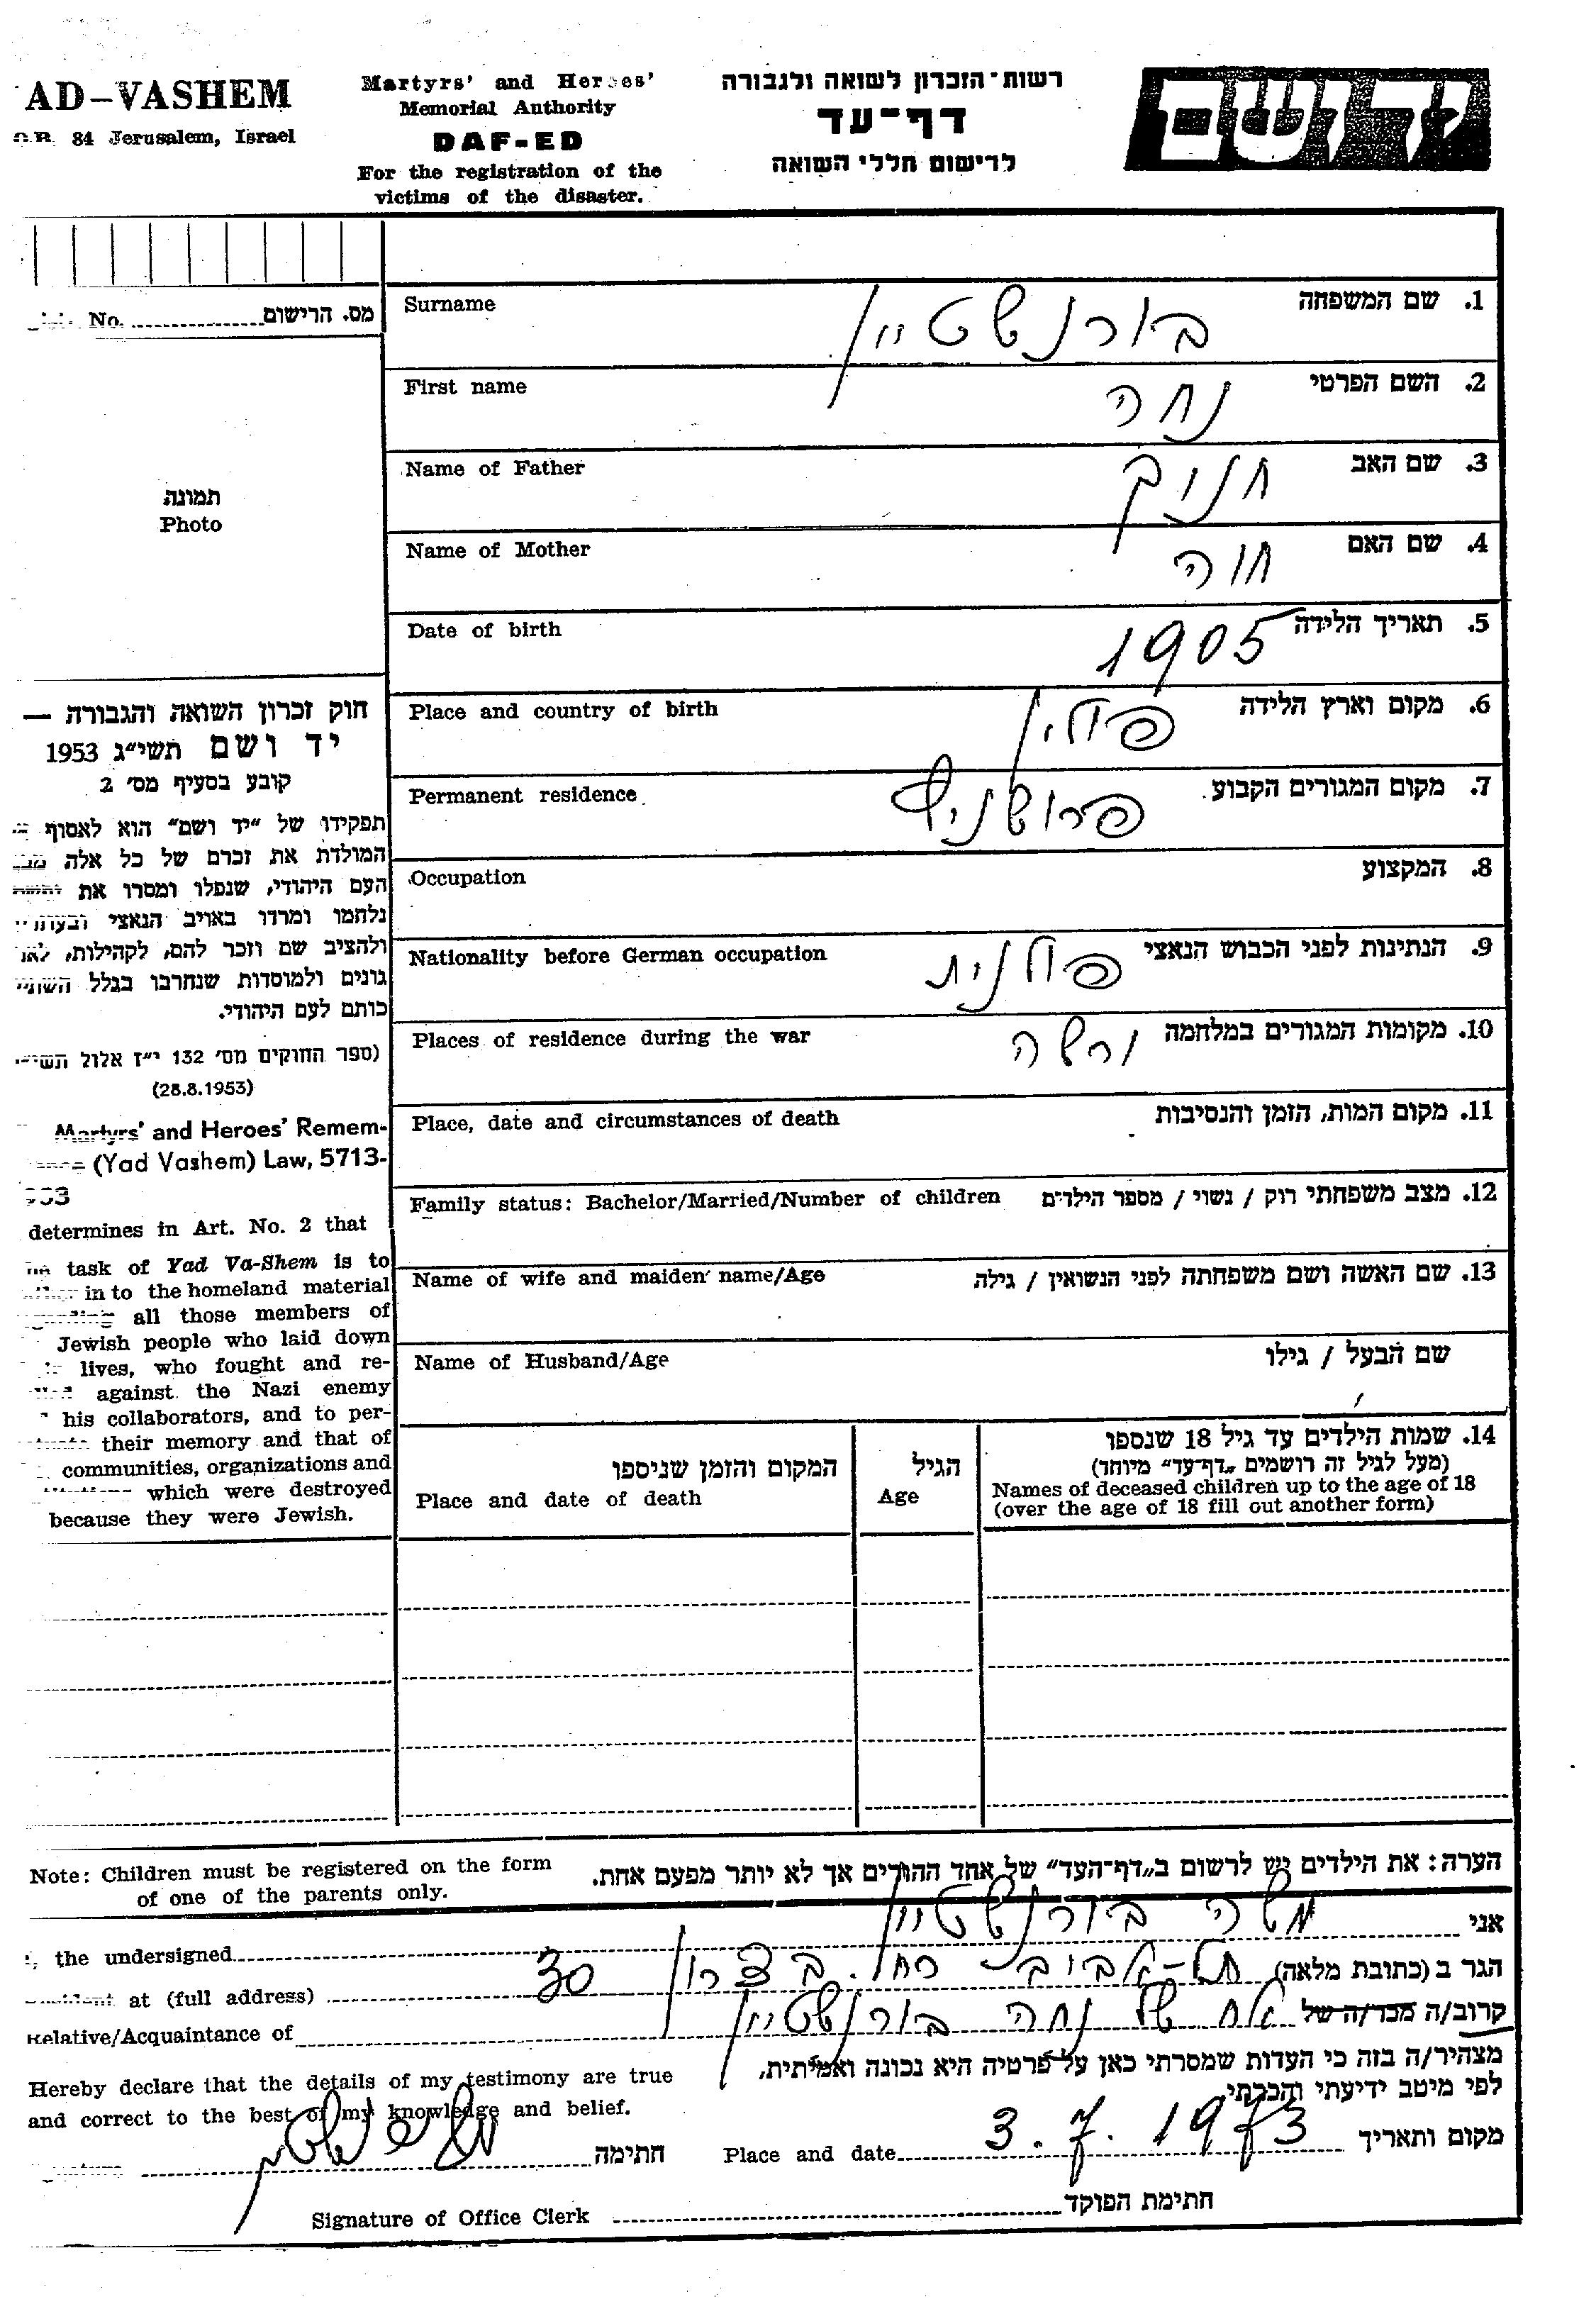 AD-VASHEM
84 Jerusalem, Israel
Martyrs' and Heroes'
Memorial Authority
DAF-ED
For the registration of the
victims of the disaster.
רשות-הזכרון לשואה ולגבורה
דף-עד
לרישום חללי השואה
יד ושם
No. ............ מס. הרישום
תמונה
Photo
חוק זכרון השואה והגבורה —
יד ושם תשי״ג 1953
קובע בסעיף מס׳ 2
תפקידו של ״יד ושם״ הוא לאסוף
המולדת את זכרם של כל אלה
העם היהודי, שנפלו ומסרו את
נלחמו ומרדו באויב הנאצי
ולהציב שם וזכר להם, לקהילות,
גונים ולמוסדות שנחרבו בגלל
כותם לעם היהודי.
(ספר החוקים מס׳ 132 י״ז אלול
(28.8.1953)
Martyrs' and Heroes' Remem-
(Yad Vashem) Law, 5713-
determines in Art. No. 2 that
task of Yad Va-Shem is to
in to the homeland material
all those members of
Jewish people who laid down
lives, who fought and re-
against the Nazi enemy
his collaborators, and to per-
their memory and that of
communities, organizations and
which were destroyed
because they were Jewish.
Surname בורנשטיין 1. שם המשפחה
First name נחה 2. השם הפרטי
Name of Father חנוך 3. שם האב
Name of Mother חוה 4. שם האם
Date of birth 1905 5. תאריך הלידה
Place and country of birth פולין 6. מקום וארץ הלידה
Permanent residence 7. מקום המגורים הקבוע
Occupation 8. המקצוע
Nationality before German occupation פולנית 9. הנתינות לפני הכבוש הנאצי
Places of residence during the war ורשה 10. מקומות המגורים במלחמה
Place, date and circumstances of death 11. מקום המות, הזמן והנסיבות
Family status: Bachelor/Married/Number of children 12. מצב משפחתי רוק / נשוי / מספר הילדים
Name of wife and maiden name/Age 13. שם האשה ושם משפחתה לפני הנשואין / גילה
Name of Husband/Age שם הבעל / גילו
14. שמות הילדים עד גיל 18 שנספו
(מעל לגיל זה רושמים „דף-עד״ מיוחד)
Names of deceased children up to the age of 18
(over the age of 18 fill out another form)
הגיל
Age
המקום והזמן שניספו
Place and date of death
Note: Children must be registered on the form
of one of the parents only.
הערה: את הילדים יש לרשום ב„דף-העד״ של אחד ההורים אך לא יותר מפעם אחת.
אני משה בורנשטיין
the undersigned
הגר ב (כתובת מלאה) תל-אביב רח. ב צרון 30
at (full address)
קרוב/ה מכר/ה של אח של נחה בורנשטיין
Relative/Acquaintance of
מצהיר/ה בזה כי העדות שמסרתי כאן על פרטיה היא נכונה ואמיתית,
לפי מיטב ידיעתי והכרתי.
Hereby declare that the details of my testimony are true
and correct to the best of my knowledge and belief.
מקום ותאריך 3.7.1973 Place and date
חתימה
Signature of Office Clerk חתימת הפוקד